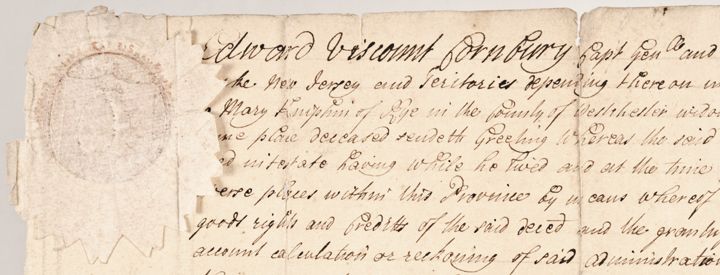 Edward Viscount Cornbury Capt Genll and
the New Jersey and Teritories depending thereon in
Mary Kniphin of Rye in the County of Westchester widow
same place deceased sendeth Greeting Whereas the said
died intestate having while he lived and at the time
diverse places within this Province by means whereof
goods rights and Creditts of the said deced and the granting
account calculation or reckoning of said administration